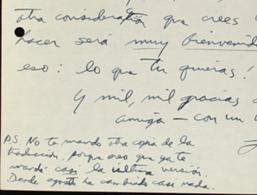 otra consideración que crees
hacer será muy bienvenid
eso: lo que tu quieras!
Y mil, mil gracias
amiga — con un
P.S. No te mando otra copia de la
traducción, porque creo que ya te
mandé casi la última versión.
Desde agosto he cambiado casi nada.